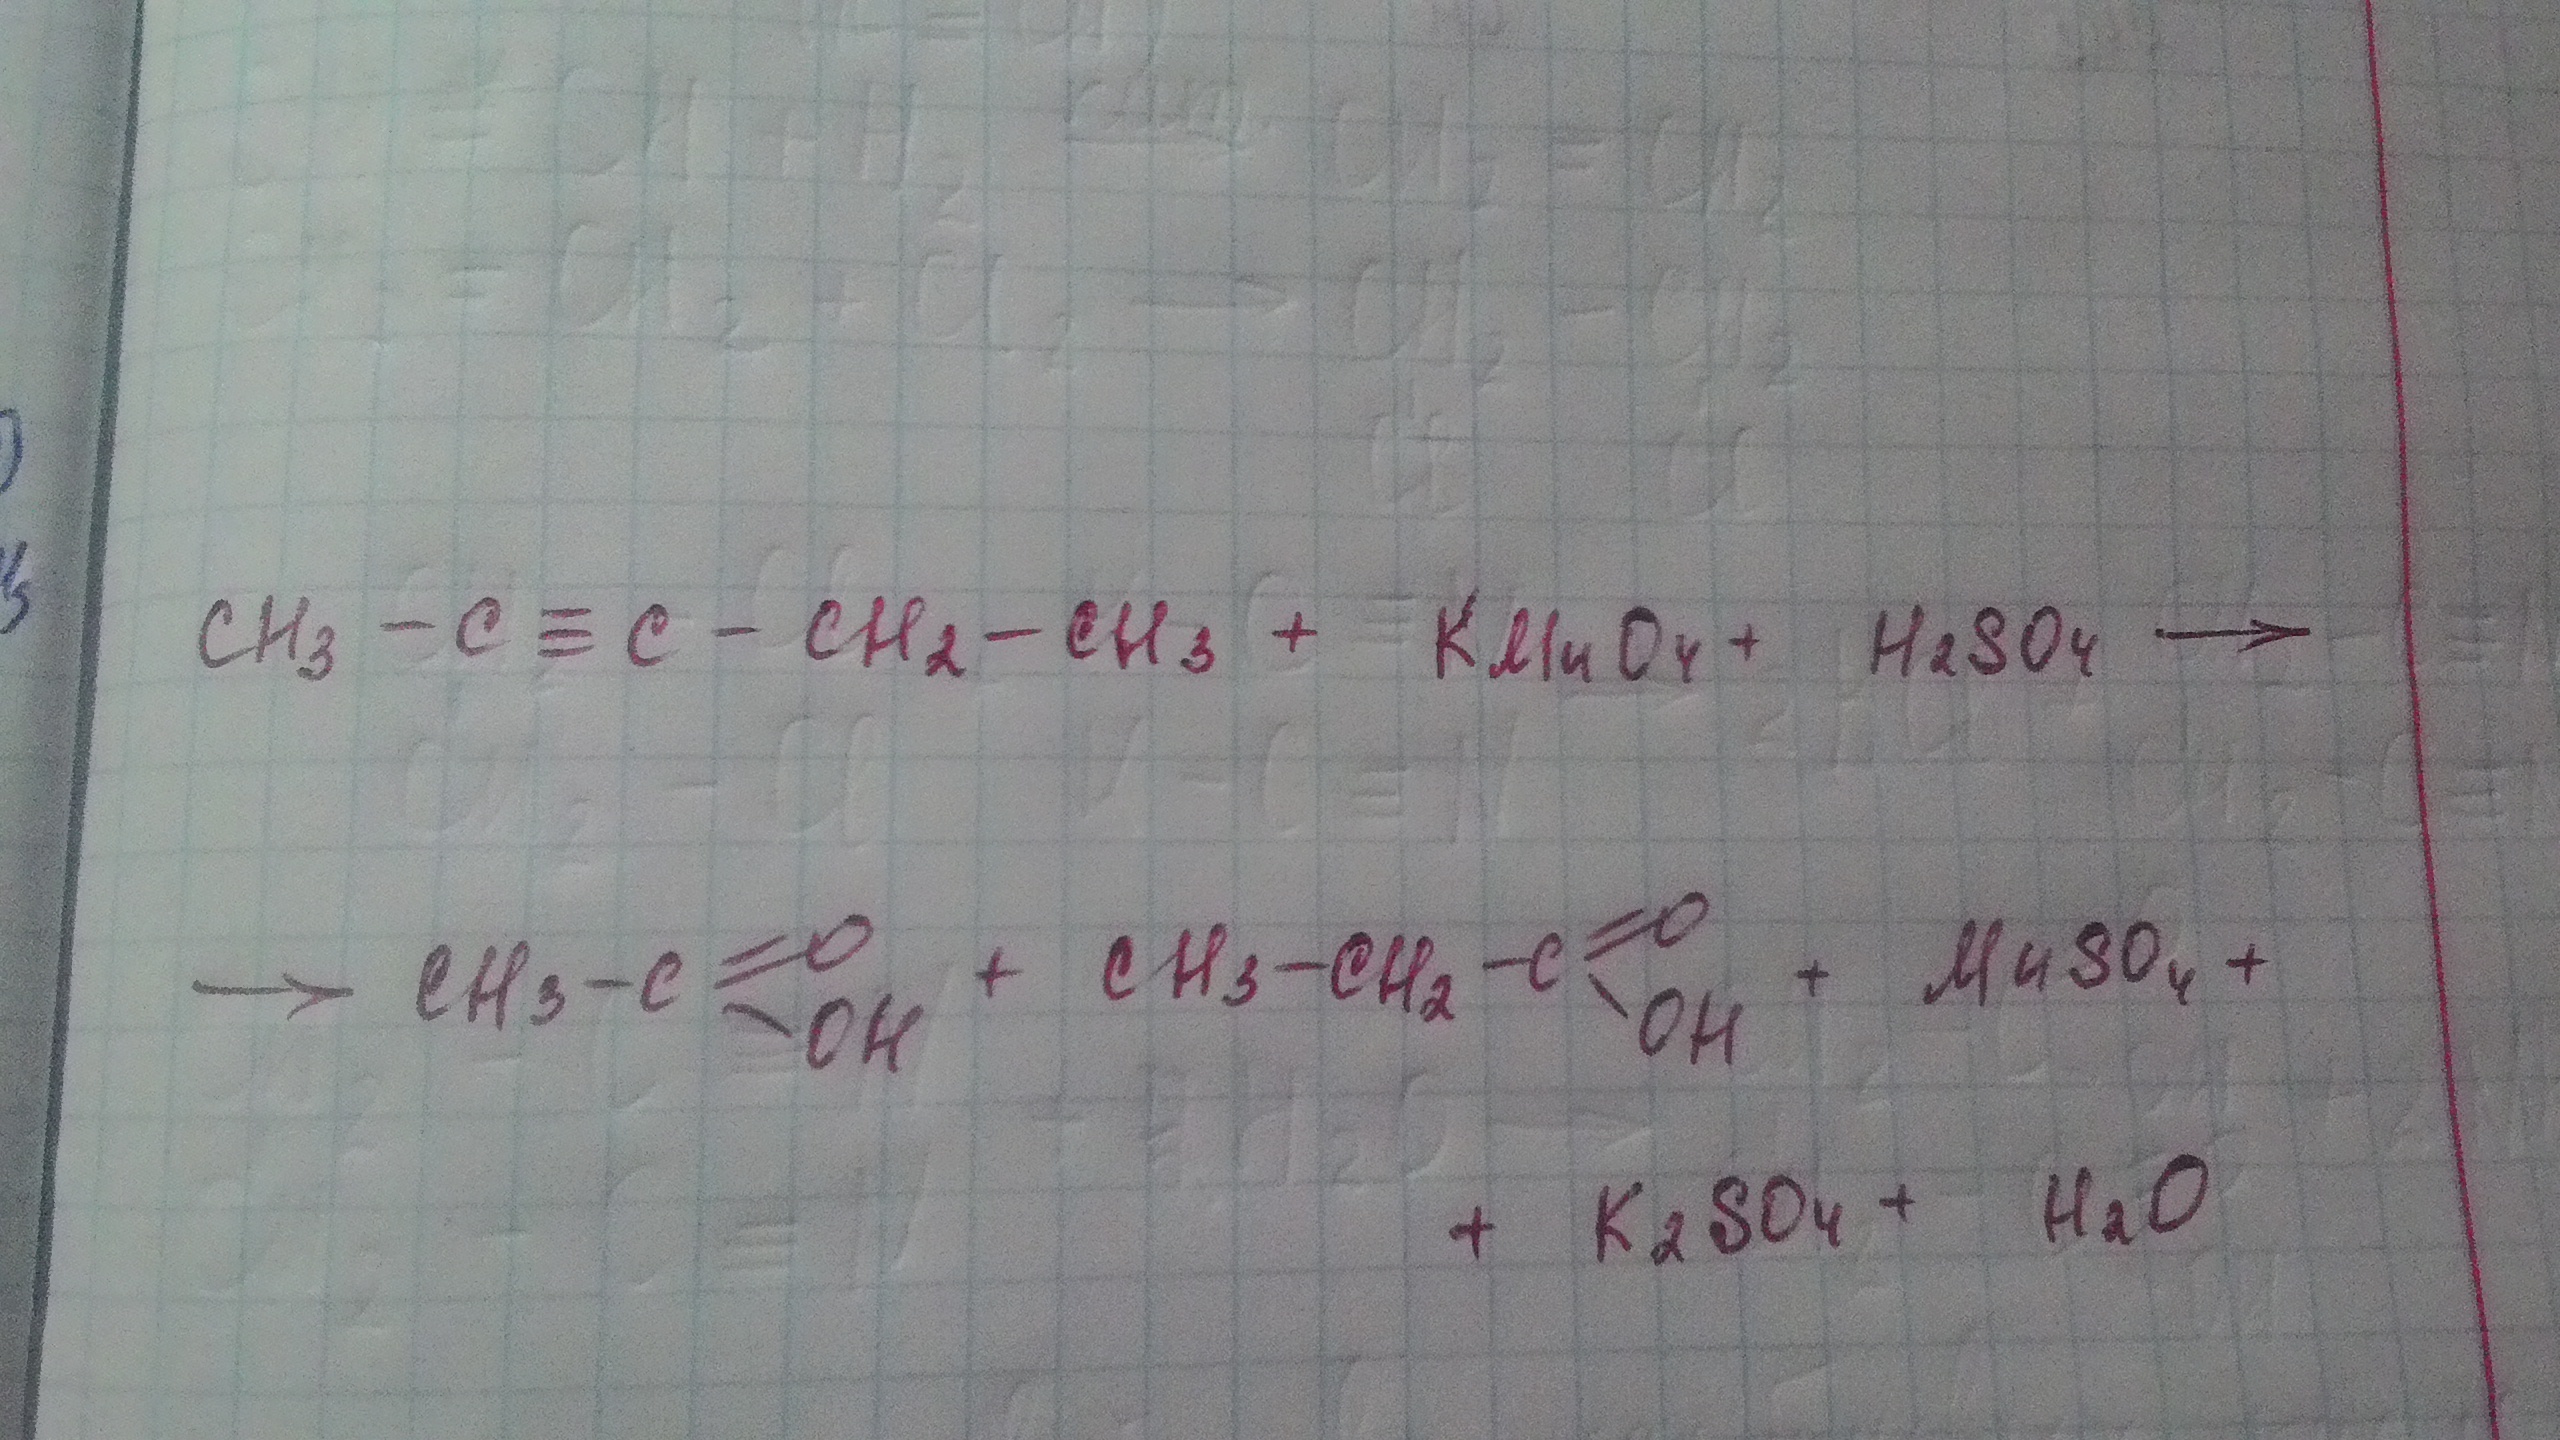 CH3 - C ≡ C - CH2 - CH3 + KMnO4 + H2SO4 →
→ CH3 - C =O OH + CH3 - CH2 - C =O OH + MnSO4 +
+ K2SO4 + H2O